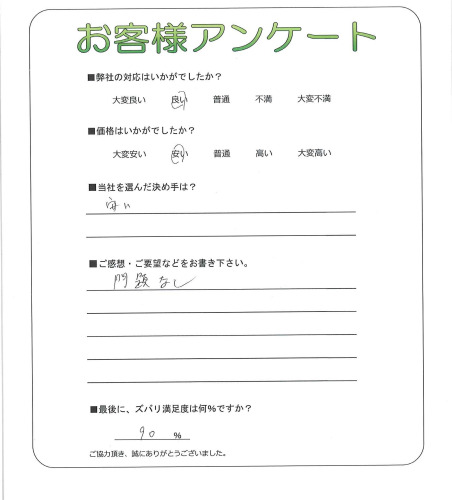 お客様アンケート
■弊社の対応はいかがでしたか？
大変良い 良い 普通 不満 大変不満
■価格はいかがでしたか？
大変安い 安い 普通 高い 大変高い
■当社を選んだ決め手は？
安い
■ご感想・ご要望などをお書き下さい。
問題なし
■最後に、ズバリ満足度は何％ですか？
90 ％
ご協力頂き、誠にありがとうございました。